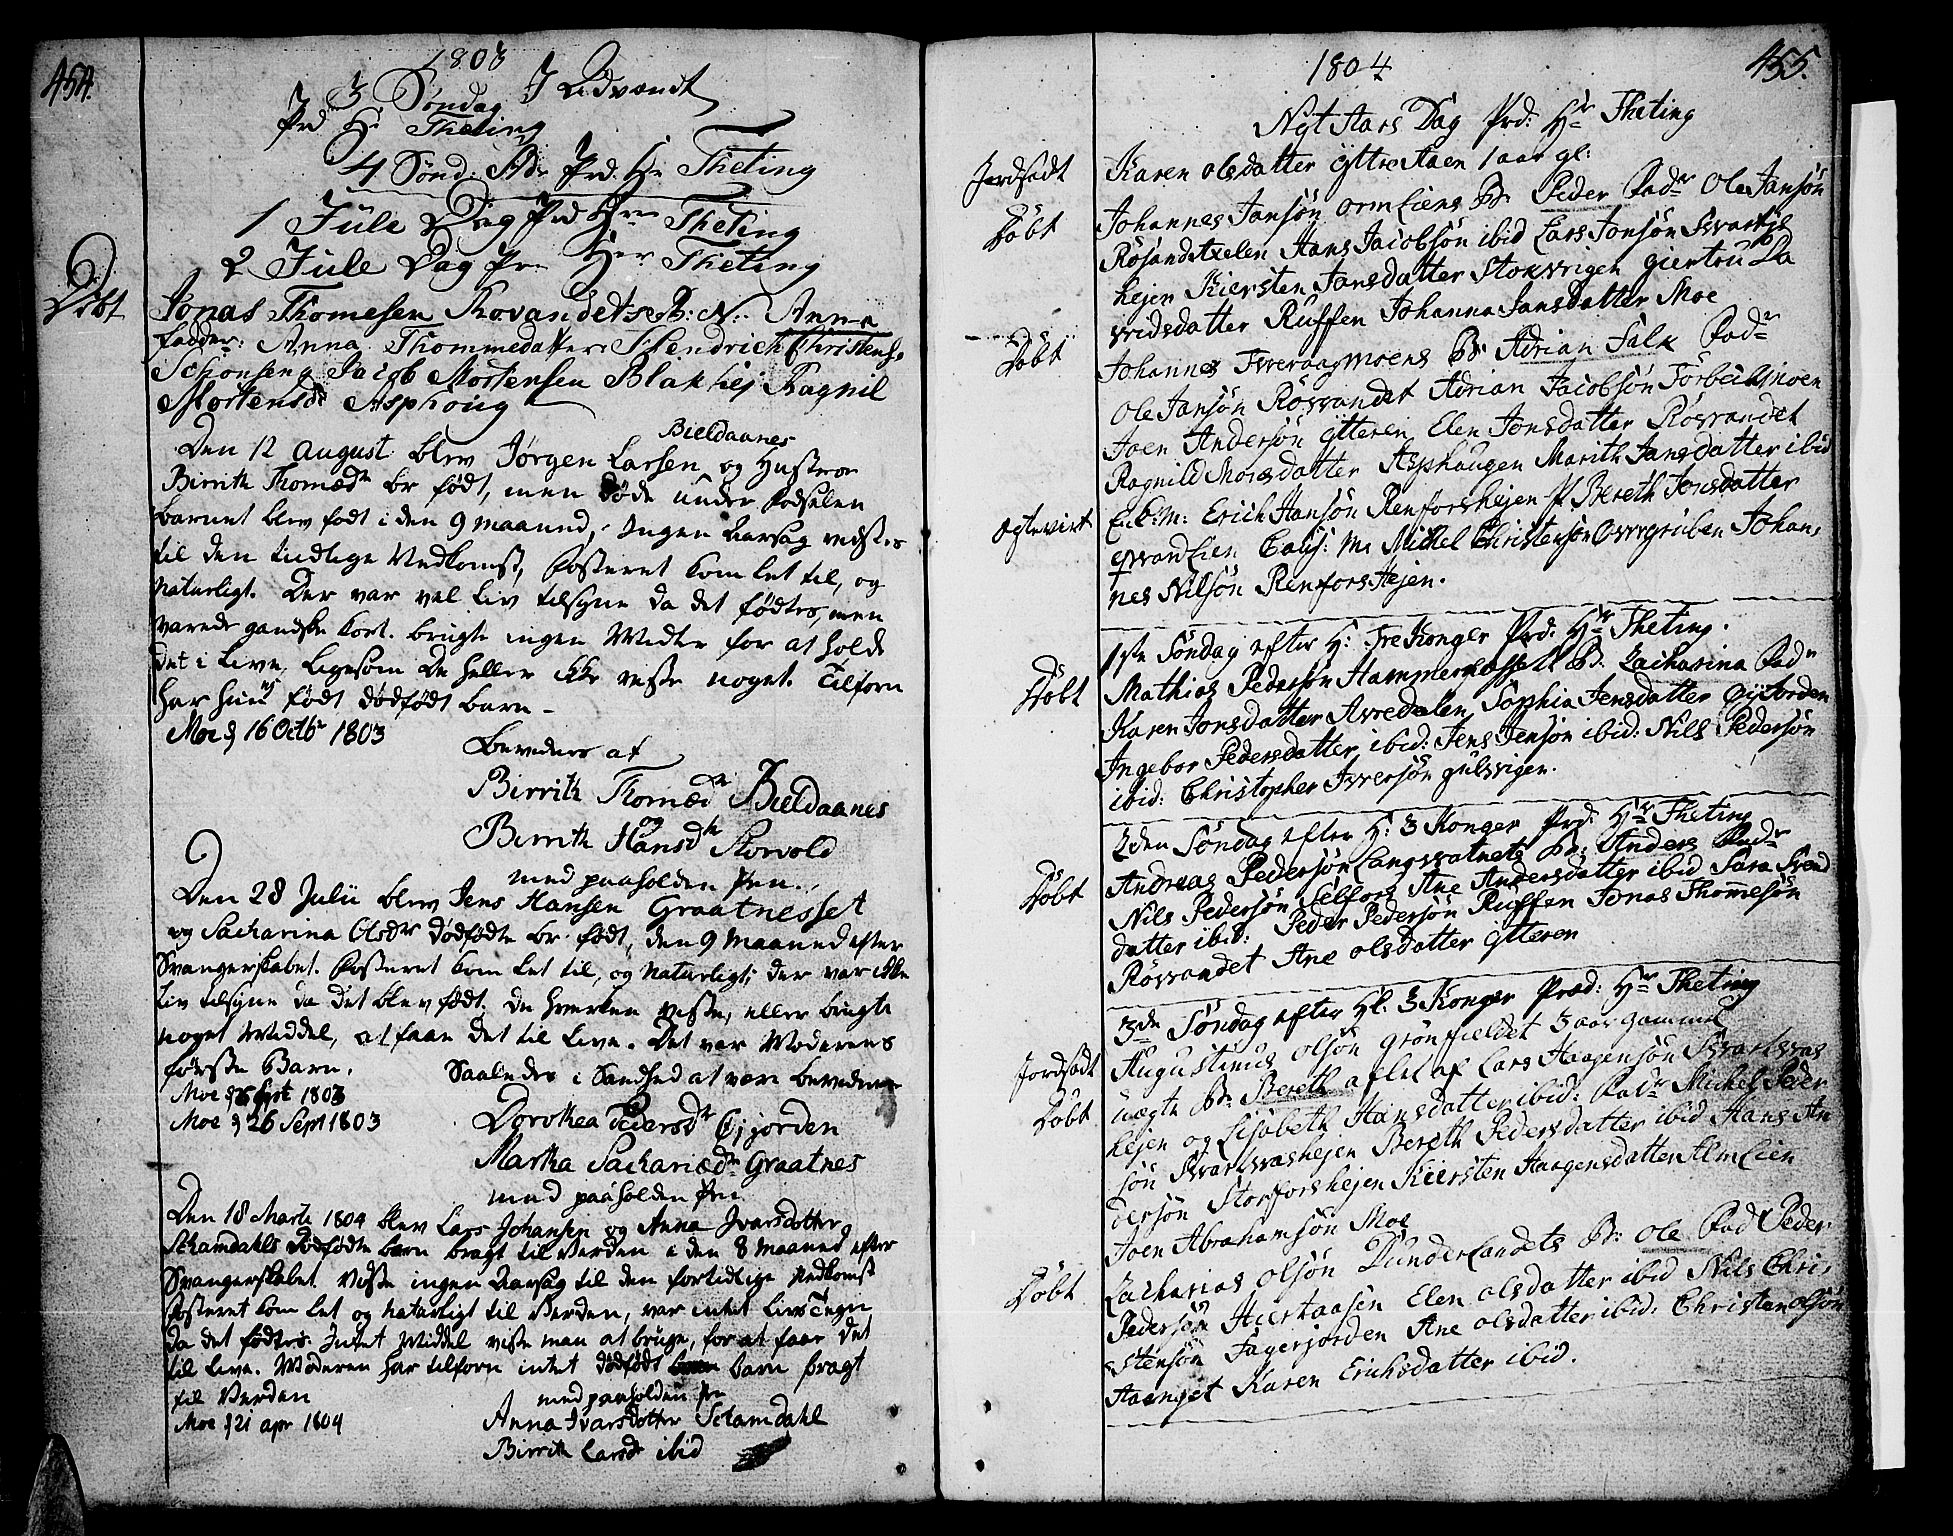 454.
1803
3 Søndag I Advændt
Prd Hr Theting
4 Sønd. Ad. Prd. Hr Theting
1 Jule Dag Prd Hrr Theting
2 Jule Dag Pr Herr Theting
Døbt
Jonas Thomesen Rovandets B: N: Anna
fadder: Anna Thommedatter Hendrich Christens.
Schonseng Jacob Mortensen Blakhej Ragnil
Mortensd Asphoug
Den 12 August blev Jørgen Larsen Bieldaanes og Hustroe
Birrith Thomæd br født, men døde under Fødselen
barnet blev født i den 9 maaned, Ingen Aarsag vidstes
til den tidlige Nedkomst, Fosteret kom let til, og
naturligt. Der var vel Liv tilsyne da det fødtes, men
varede gandske kort. brugte ingen Midler for at holde
det i Live, ligesom de heller ikke viste noget. Tilforn
har hun født dødfødt barn -
Moe d 16 Octbr 1803
bevidnes af
Birrith Thomæd Bieldaanes
og
Birrith Hansd Storvold
med paaholden Pen.
Den 28 Julii blev Jens Hansen Graatnesset
og Sacharina Olsdr dødfødte br. født, den 9 Maaned efter
Svangerskabet. Fosteret kom let til, og naturligt; der var ikke
Liv tilsyne da det blev født; De hverken viste, eller brugte
noget Middel, at faae det til Live. Det var Moderens
første Barn.
Saaledes i Sandhed at være bevidnes
Moe d 26 Sept 1803
Dorothea Pedersdr Gijorden
Martha Sachariædr Graatnes
med paaholden Pen
Den 18 Marti 1804 blev Lars Johansen og Anna Ivarsdotter
Schamdahls dødfødte barn bragt til Verden i den 8 Maaned efter
Svangerskabet. Viste ingen Aarsag til den fortidlige Nedkomst
Fosteret kom let og naturligt til Verden, var intet Livs Tegn
da det fødtes. Intet Middel viste man at bruge, for at faae det
til Live. Moderen har tilforn intet dødfødt barn bragt
til Verden
med paaholden Pen
Moe d 21 apr 1804
Anna Ivarsdotter Schamdahl
Birrith Larsdr ibid
455.
1804
Nyt Aars Dag Prd: Hr Theting
Jordfæst
Karen olsdatter yttre Aaen 1 aar gl:
Døbt
Johannes Jansøn ormliens B. Peder Fadr Ole Jansøn
Røsandaxelen Hans Jacobsøn ibid Lars Jonsøn Svartis
hejen Kiersten Jansdatter Stokvigen giertru Da
vidsdatter Ruffen Johanna Jansdatter Moe
Døbt
Johannes Tveraagmoens B. Adrian Falk Fadr
Ole Jansøn Røsvandet Adrian Jacobsøn Forbeksmoen
Joen Andersøn ytteren Elen Jonsdatter Røsvandet
Ragnild Monsdatter Asphaugen Marith Jansdatter ibid
Ægtevirt
E.k:m: Erich Hansøn Renforshejen P. Bereth Jonsdatter
Caus: M: Michel Christensøn Overgruben Johan,
nes Nilsøn Renfors Hejen.
1ste Søndag efter H: Tre Konger Prd: Hr Theting.
Døbt
Mathias Pedersøn B. Zacharina Fadr
Karen Jonsdatter Avredalen Sophia Jensdatter gijorden
Ingebor Pedersdatter ibid: Jens Jensøn ibid: Nils Pedersøn
ibid: Christopher Iversøn gulsvigen.
2den Søndag efter H: 3 Konger Prd: Hr Theting
Døbt
Andreas Pedersøn Langvatnets B: Anders Fadr
Nils Pedersøn Selfors Ane Andersdatter ibid Sara Svend
datter ibid: Peder Pedersøn Ruffen Jonas Thommesøn
Røsvandet Ane olsdatter ytteren
3de Søndag efter Hl. 3 Konger Præd: Hr Theting
Jordfæst
Augustinus olsøn grønfieldet 3 aar gammel
Døbt
uægte B: Bereth aflet af Lars Haagensøn Svartvas
hejen og Lisabeth Hansdatter ibid: Fadr Michel Peder
søn Svartvashejen Bereth Pedersdatter ibid Hans An
dersøn Storforshejen Kiersten Haagensdatter Almlien
Joen Abrahamsøn Moe
Døbt
Zacharias olsøn Dunderlandets B: ole Fad Peder
Pedersøn Hiertaasen Elen olsdatter ibid Nils Chri,
stensøn Fagerjorden Ane olsdatter ibid: Christen olsøn
Haanget Karen Erichsdatter ibid.